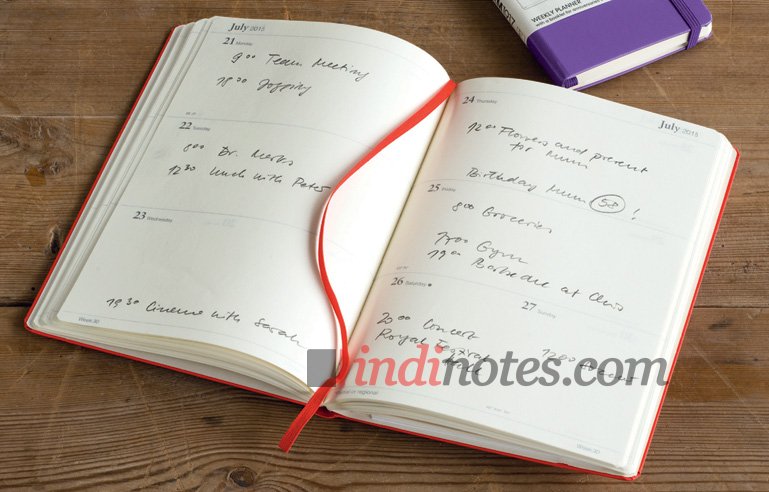 July 2015
21 Monday
9 00 Team Meeting
18 00 Jogging
22 Tuesday
8 00 Dr. Merks
12 30 Lunch with Peter
23 Wednesday
19 30 Cinema with Sarah
Week 30
WEEKLY PLANNER
with a booklet for appointments
July 2015
24 Thursday
12 00 Flowers and present
for Mum
Birthday Mum 58 !
25 Friday
8 00 Groceries
17 00 Gym
19 00 Barbecue at Chris
26 Saturday
20 00 Concert
Royal Festival
Hall
27 Sunday
12 00
Week 30
hindinotes.com